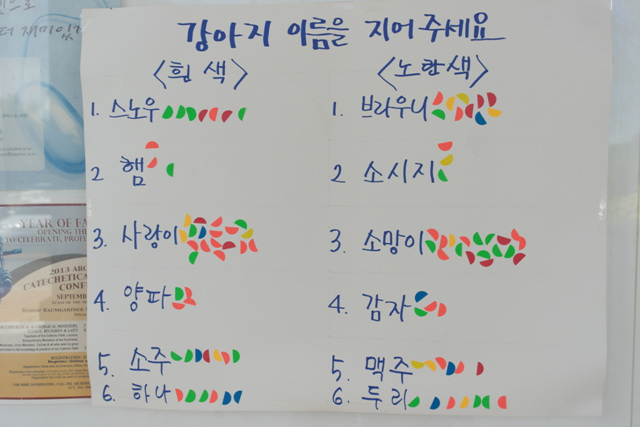 강아지 이름을 지어주세요
<흰색>
1. 스노우
2 햄
3. 사랑이
4. 양파
5. 소주
6. 하나
<노란색>
1. 브라우니
2 소시지
3. 소망이
4. 감자
5. 맥주
6. 두리
YEAR OF FA
OPENING TH
TO CELEBRATE, PROF
2013 ARC
CATECHETICAL
CONF
SEPTEMB